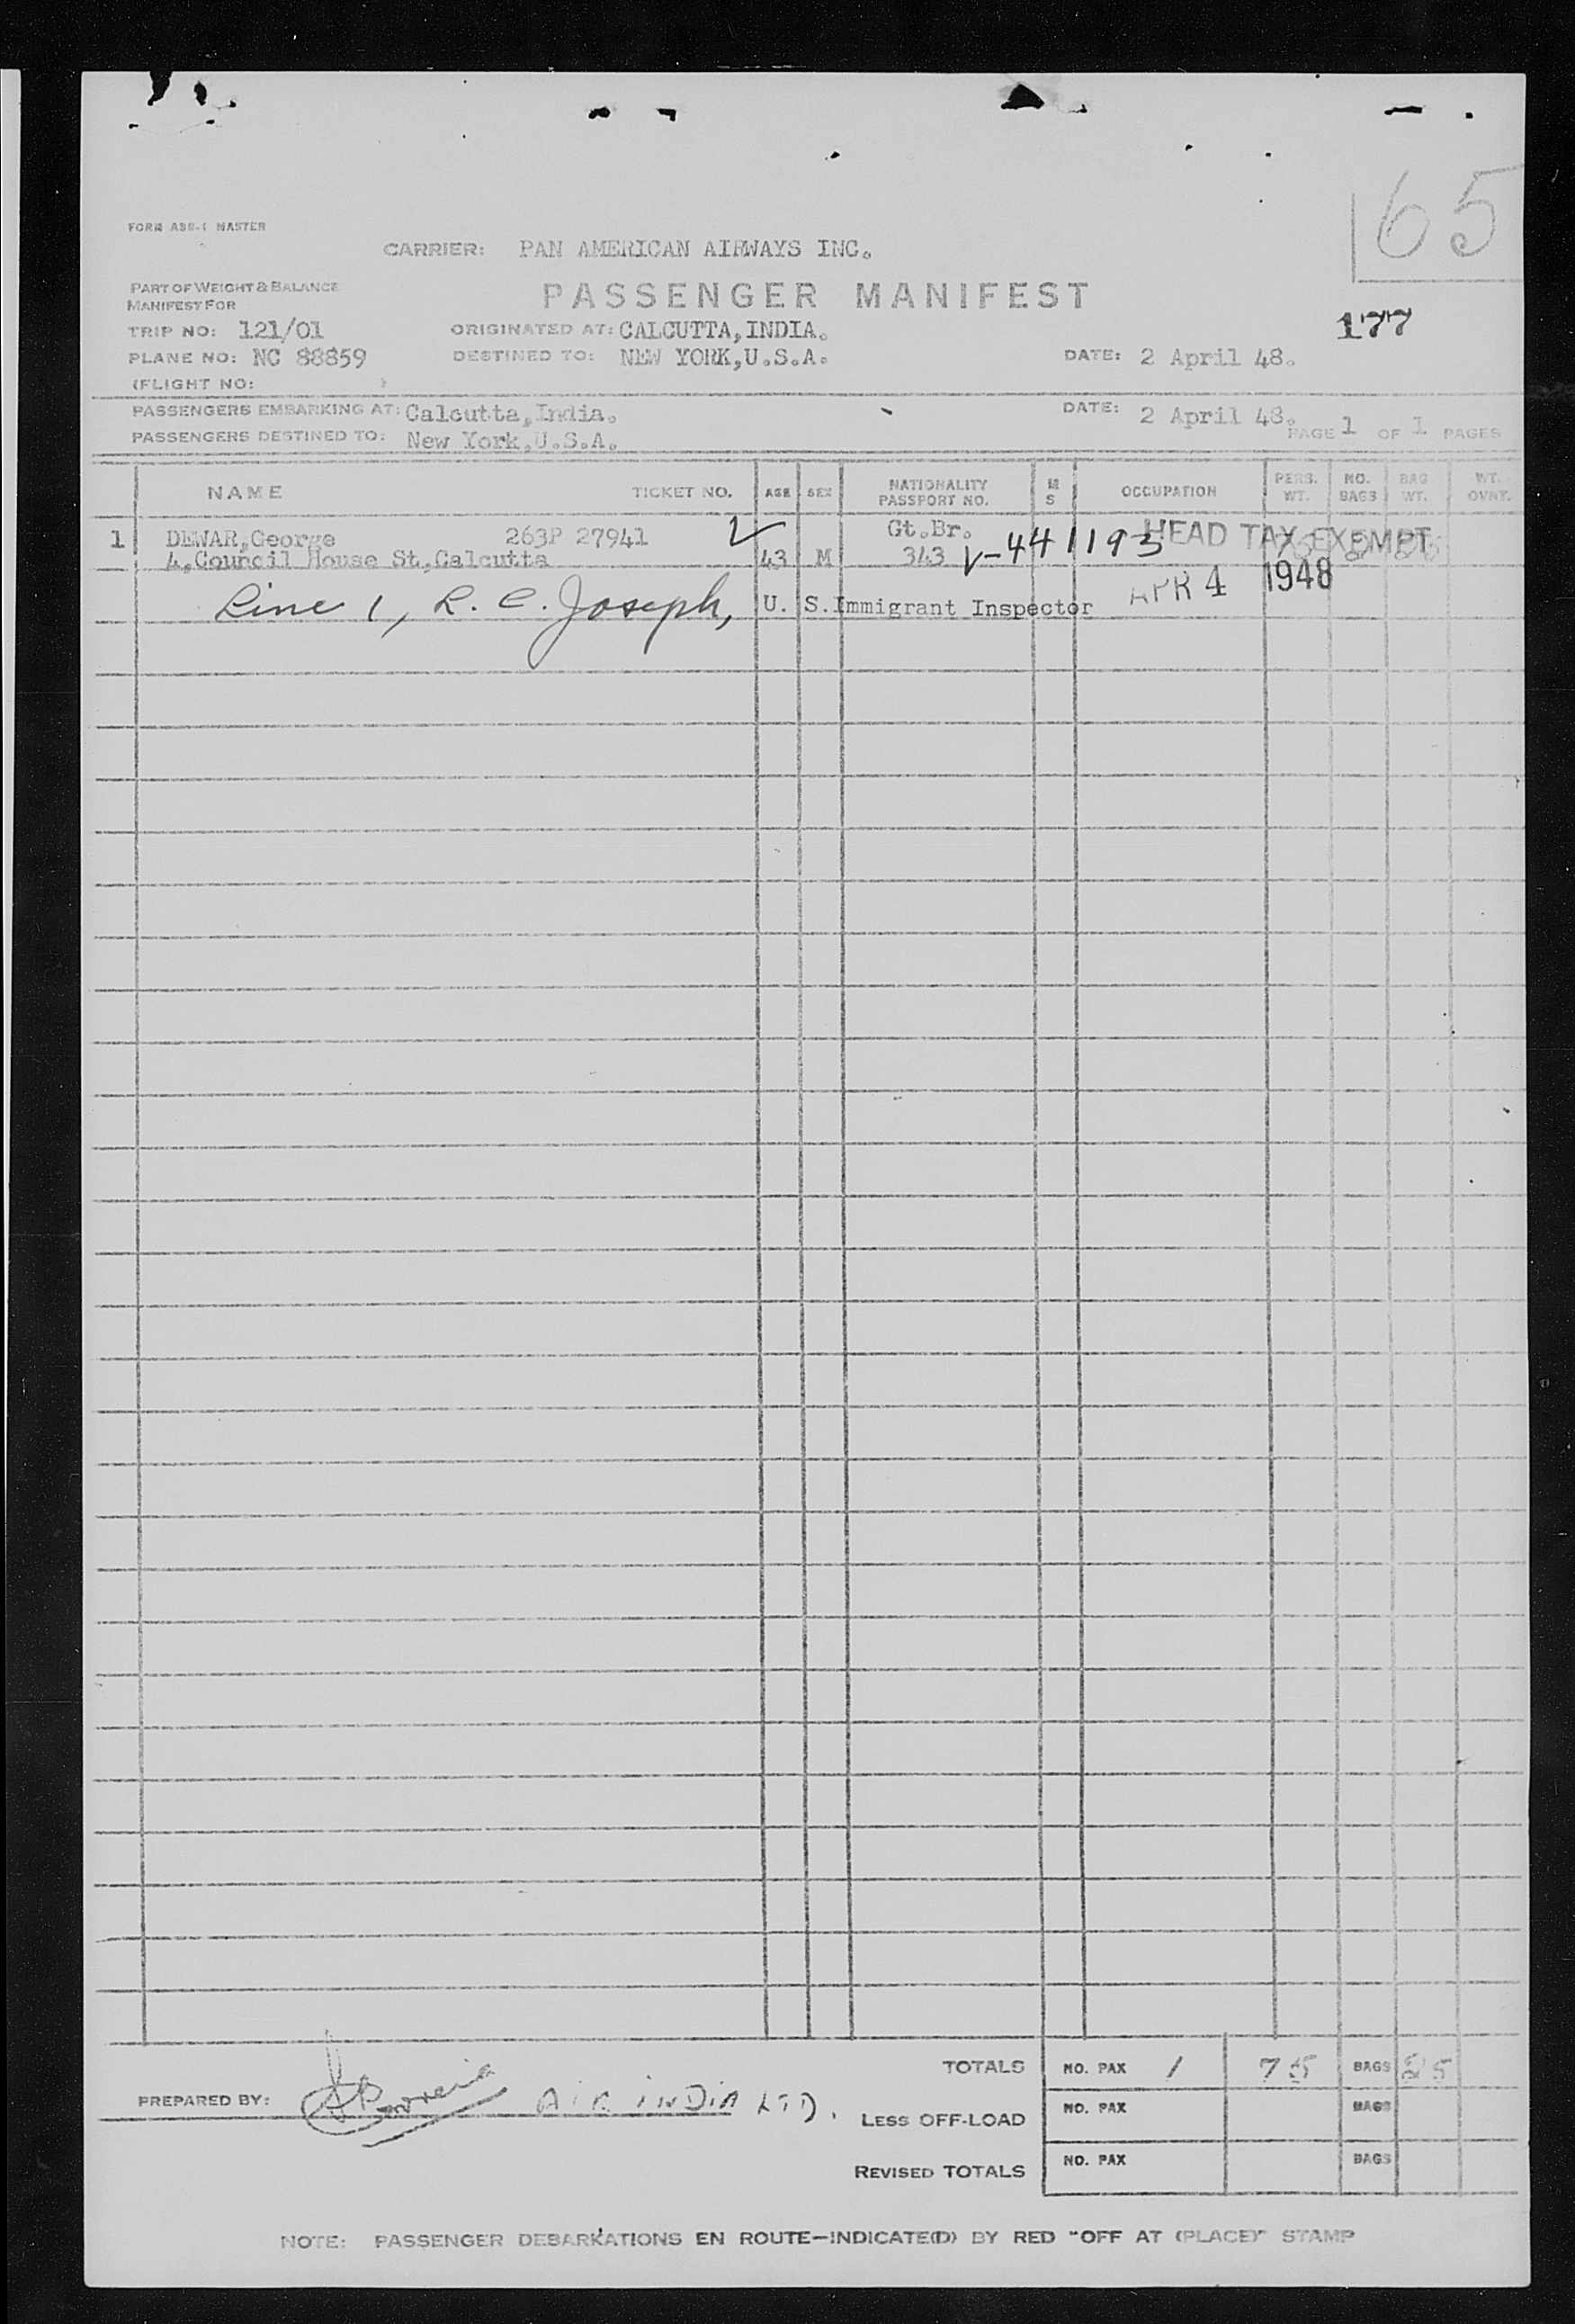 65
FORM ABS-1 MASTER
CARRIER: PAN AMERICAN AIRWAYS INC.
PART OF WEIGHT & BALANCE
MANIFEST FOR
PASSENGER MANIFEST
177
TRIP NO: 121/01 ORIGINATED AT: CALCUTTA,INDIA.
PLANE NO: NC 88859 DESTINED TO: NEW YORK,U.S.A. DATE: 2 April 48.
(FLIGHT NO: )
PASSENGERS EMBARKING AT: Calcutta,India. DATE: 2 April 48.
PASSENGERS DESTINED TO: New York,U.S.A. PAGE 1 OF 1 PAGES
NAME TICKET NO. AGE SEX NATIONALITY PASSPORT NO. M S OCCUPATION PERS. WT. NO. BAGS BAG WT. WT. OVNT.
1 DEWAR,George 263P 27941 Gt.Br. HEAD TAX EXEMPT
4,Council House St,Calcutta 43 M 343 V-441193
APR 4 1948
Line 1, R. C. Joseph, U. S. Immigrant Inspector
TOTALS NO. PAX 1 75 BAGS 25
PREPARED BY: AIR INDIA LTD.
LESS OFF-LOAD NO. PAX BAGS
REVISED TOTALS NO. PAX BAGS
NOTE: PASSENGER DEBARKATIONS EN ROUTE—INDICATE(D) BY RED "OFF AT (PLACE)" STAMP